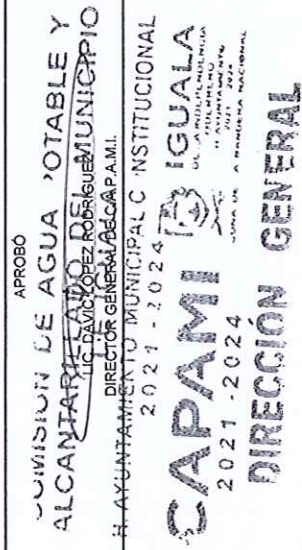 APROBÓ
COMISION DE AGUA POTABLE Y
ALCANTARILLADO DEL MUNICIPIO
LIC. DAVID LOPEZ RODRIGUEZ
DIRECTOR GENERAL DE C.A.P.A.M.I.
H. AYUNTAMIENTO MUNICIPAL C NSTITUCIONAL
2021 - 2024
CAPAMI
2021 - 2024
IGUALA
DE LA INDEPENDENCIA
GUERRERO
H AYUNTAMIENTO
2021 2024
CUNA DE LA BANDERA NACIONAL
DIRECCIÓN GENERAL